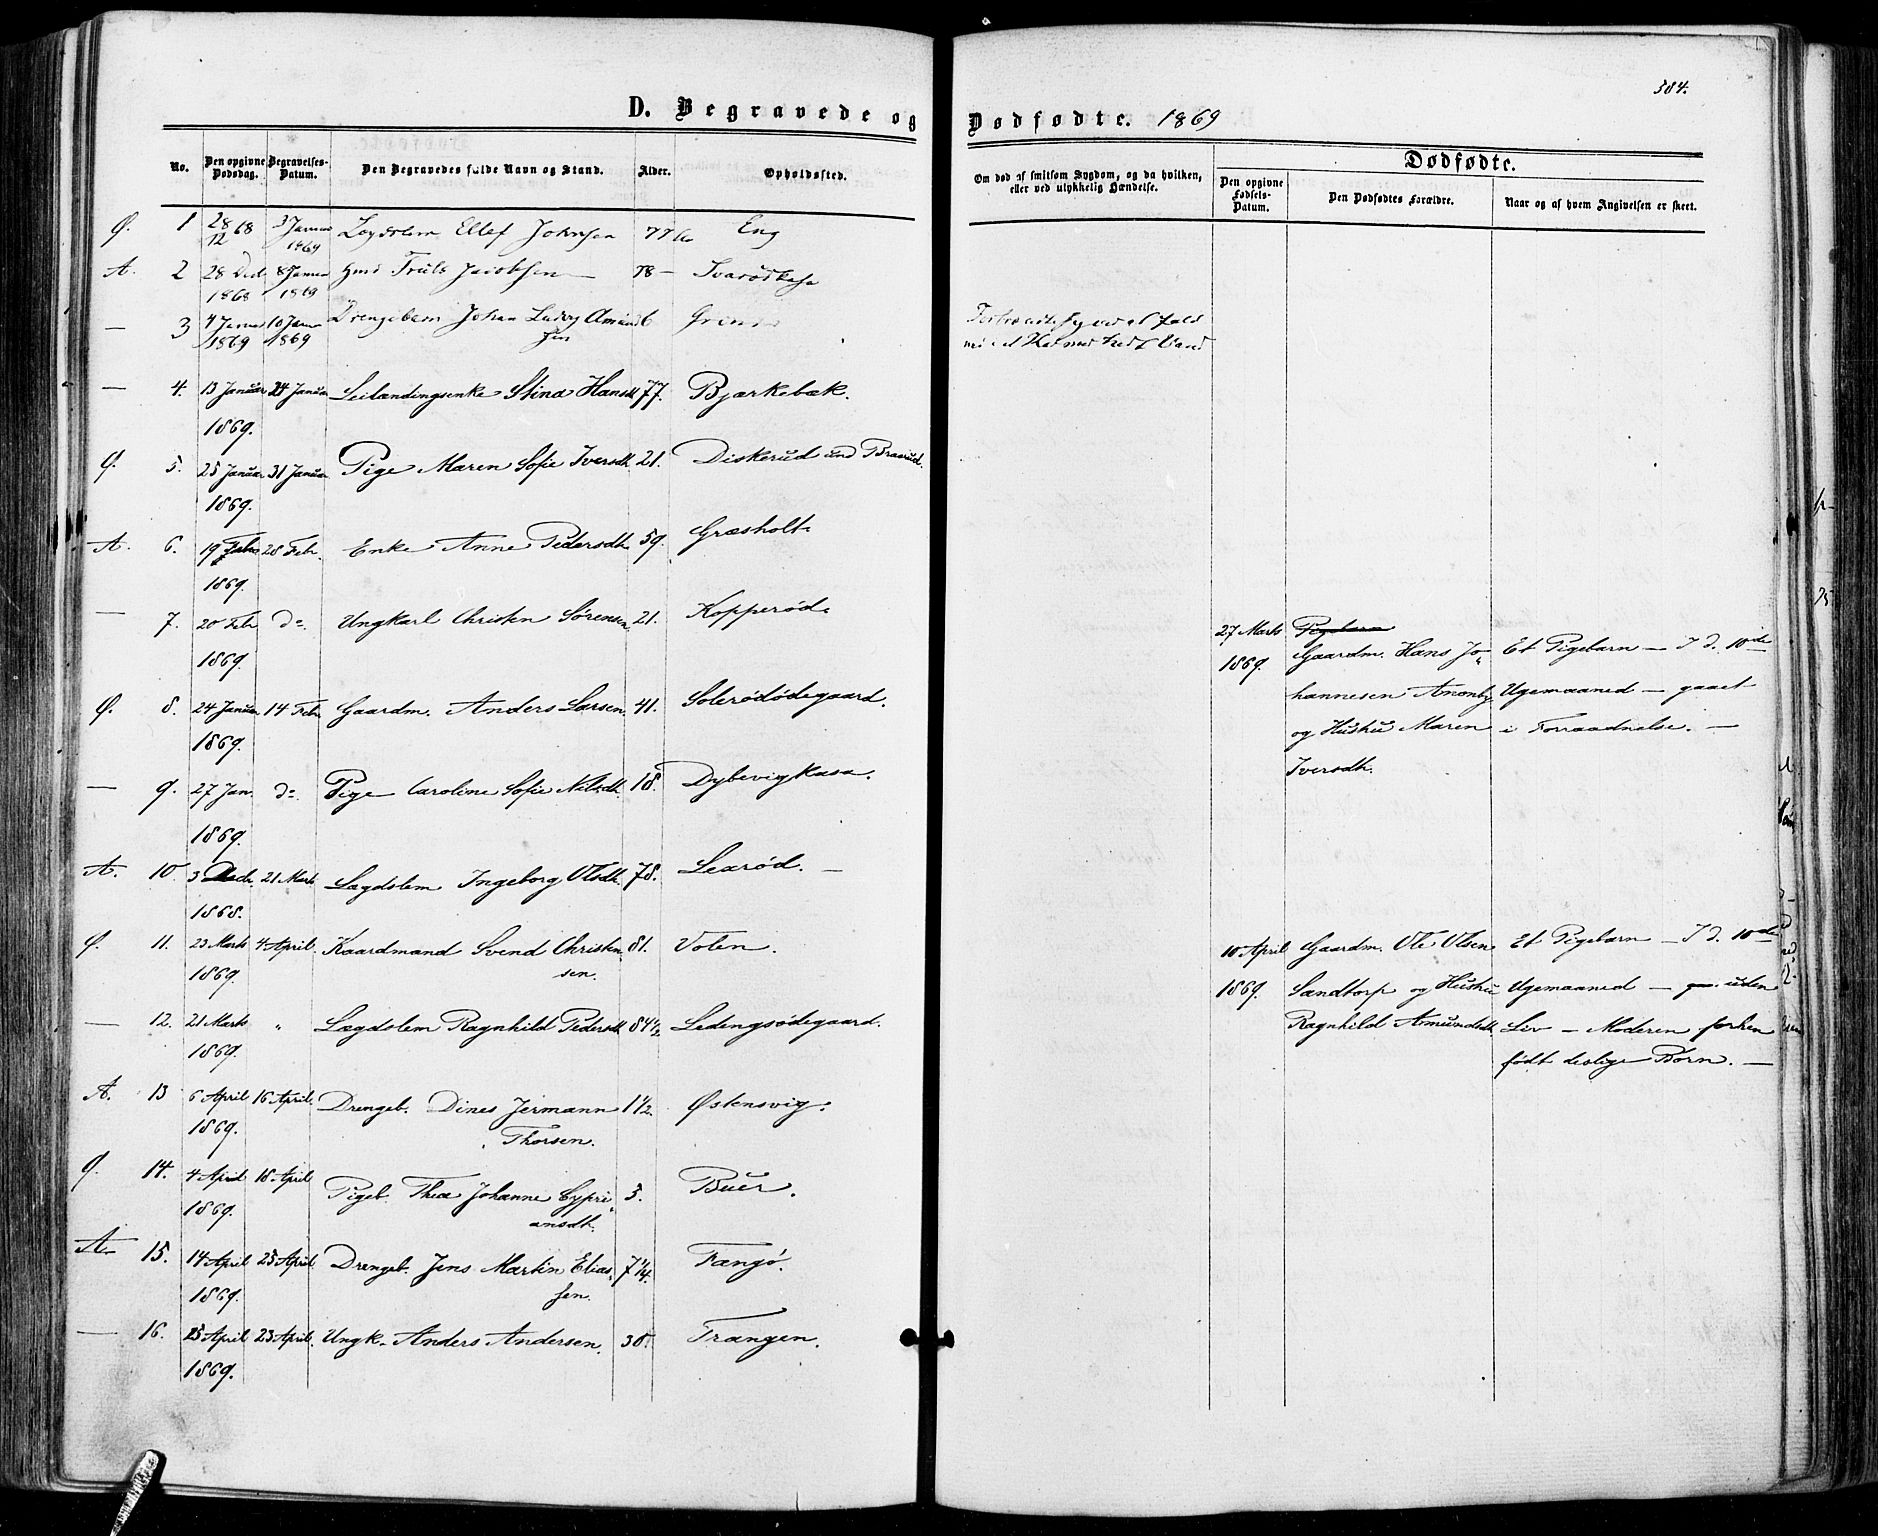 D. Begravede og
Dødfødte. 1869
384.
No.
Den opgivne Dødsdag.
Begravelses-Datum.
Den Begravedes fulde Navn og Stand.
Alder.
Opholdssted.
Om død af smitsom Sygdom, og da hvilken,
eller ved ulykkelig Hændelse.
Dødfødte.
Den opgivne Fødsels-Datum.
Den Dødfødtes Forældre.
Naar og af hvem Angivelsen er skeet.
Ø. 1 28/12 68 3 Januar 1869 Lægdslem Ellef Johnsen 77 Eng
A. 2 28 Decb 1868 8 Januar 1869 Gmd Truls Jacobsen 78 —
— 3 4 Januar 1869 10 Janu 1869 Drengebarn Johan Ludvig Amund 6
sen
— 4. 13 Januar 24 Januar Stina Hansd. 77. Bjørkebæk.
1869.
Ø. 5. 25 Januar 31 Januar Pige Maren Sofie Iversdt. 21. Diskerud und Braarud.
1869.
A. 6. 19 Febr 28 Febr. Enke Anne Pedersdt. 59. Græsholt
1869.
— 7. 20 Febr do. Ungkarl Christen Sørensen 21. Kopperød
1869.
Ø. 8. 24 Januar 14 Febr Gaardm. Anders Larsen. 41. Solerødødegaard.
1869.
— 9. 27 Jan. do. Pige Caroline Sofie Nilsdt. 18. Dybevigkasa.
1869.
A. 10. 3 Decb. 21 Marts Lægdslem Ingeborg Olsdt. 78. Learød. —
1868.
Ø. 11. 23 Marts 4 April. Kaardmand Svend Christen 81. Volen.
1869. sen.
— 12. 21 Marts " Lægdslem Ragnhild Pedersdt. 84 1/2 Ledengsødegaard.
1869.
A. 13 6 April 16 April. Drengeb. Dines Jermann 1 1/2. Østensvig.
1869. Thorsen.
Ø. 14. 4 April 18 April Pigeb. Thea Johanne Cypri 3. Buer.
1869. ansdt.
A. 15. 14 April 25 April Drengeb. Jens Martin Elias 7 1/4. Tangø.
1869. sen.
— 16. 15 April 23 April. Ungk. Anders Andersen. 30. Trangen.
1869.
27 Marts Pigebarn
1869. Gaardm. Hans Jo- Et Pigebarn — I d. 10de
hannesen Anonby Ugemaaned — gaaet
og Hustru Maren i Forraadnelse. —
Iversdt.
10 April Gaardm. Ole Olsen Et Pigebarn — I d. 10de
1869. Sandtorp og Hustru Ugemaaned — uden
Ragnhild Asmundsdt. Liv — Moderen forhen
født deslige Børn. —